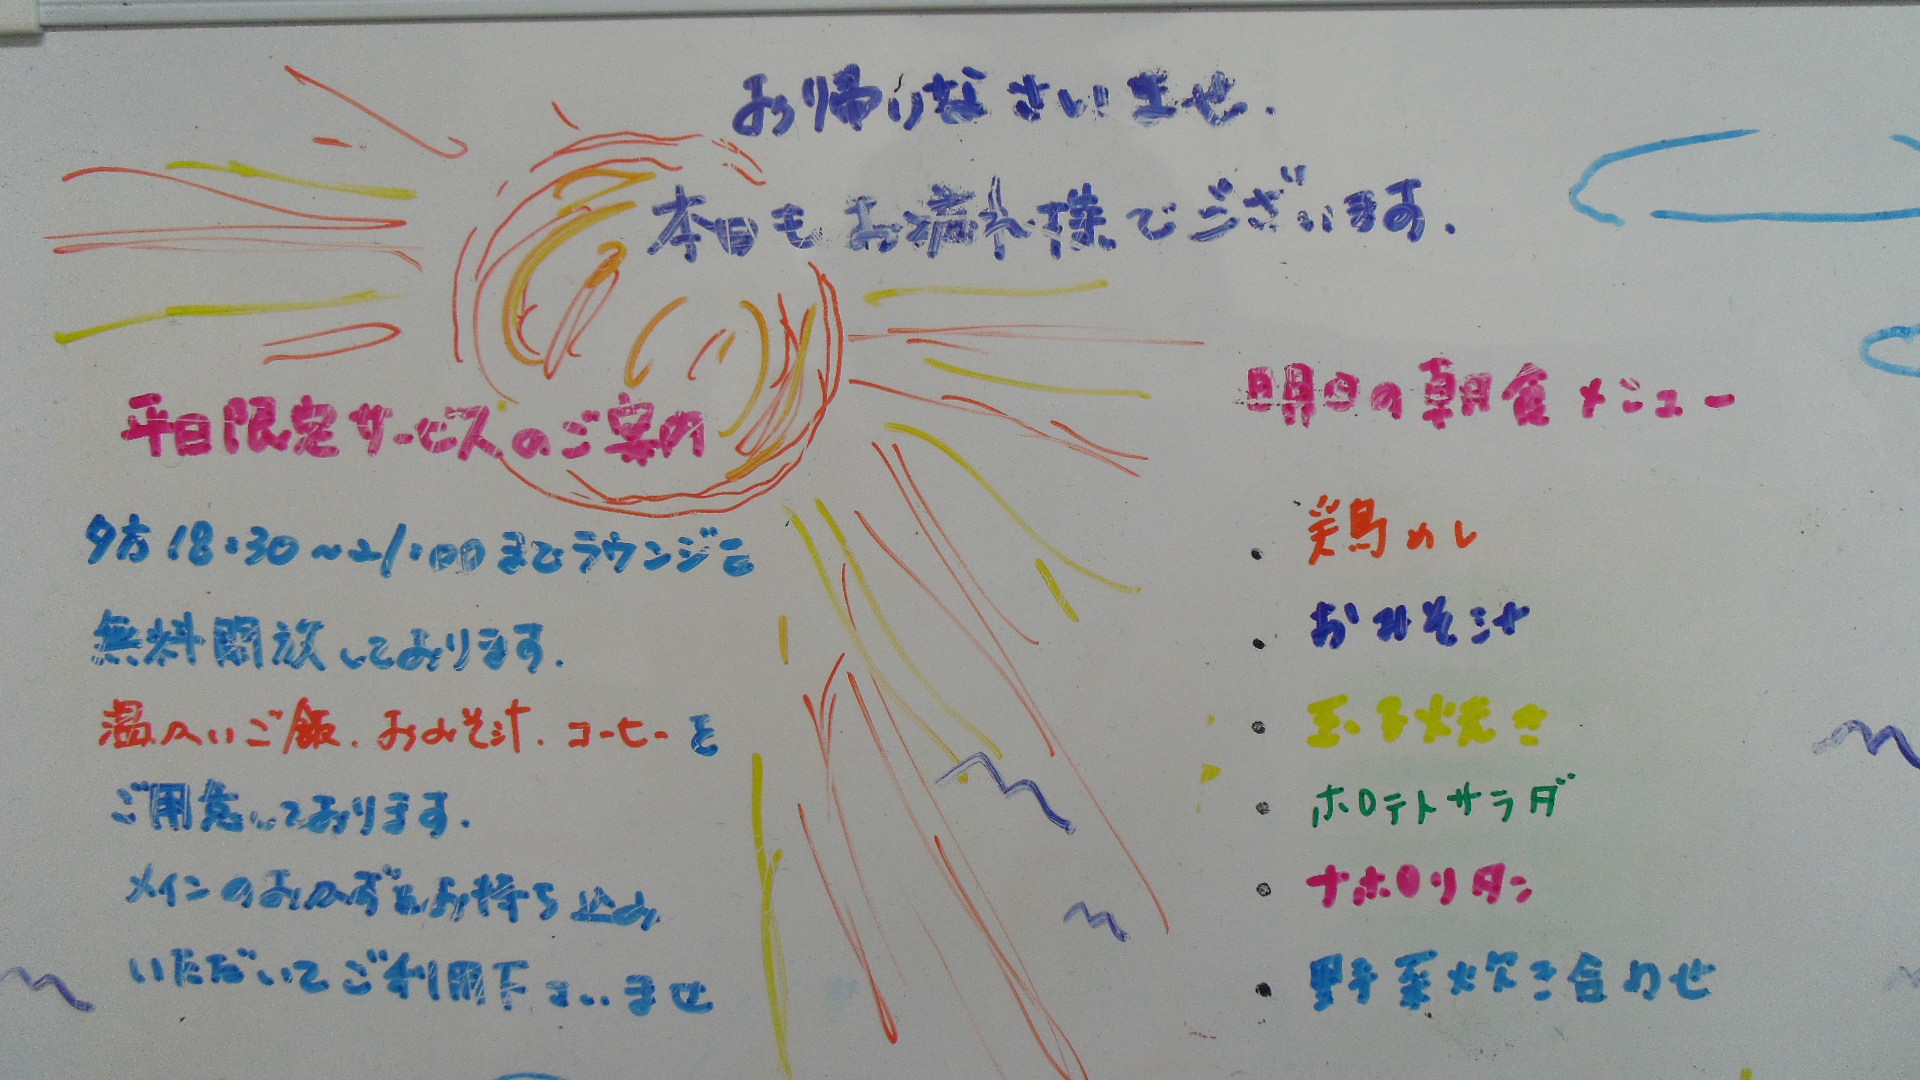 お帰りなさいませ.
本日もお疲れ様でございます.
平日限定サービスのご案内
夕方18:30～21:00までラウンジを
無料開放しております.
温かいご飯.おみそ汁.コーヒーを
ご用意しております.
メインのおかずをお持ち込み
いただいてご利用下さいませ
明日の朝食メニュー
・鶏めし
・おみそ汁
・玉子焼き
・ポテトサラダ
・ナポリタン
・野菜炊き合わせ